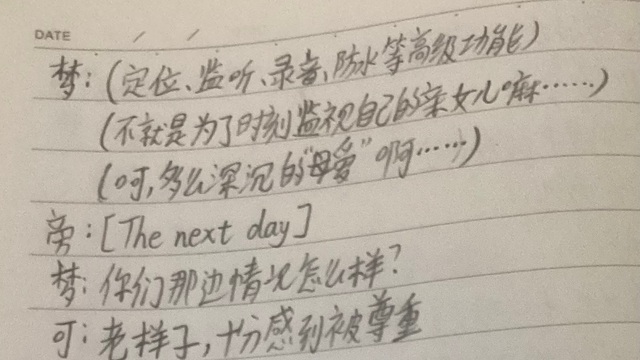 DATE / /
梦:(定位、监听、录音、防水等高级功能)
(不就是为了时刻监视自己的亲女儿嘛……)
(呵,多么深沉的“母爱”啊……)
旁:[The next day]
梦:你们那边情况怎么样?
可:老样子,十分感到被尊重